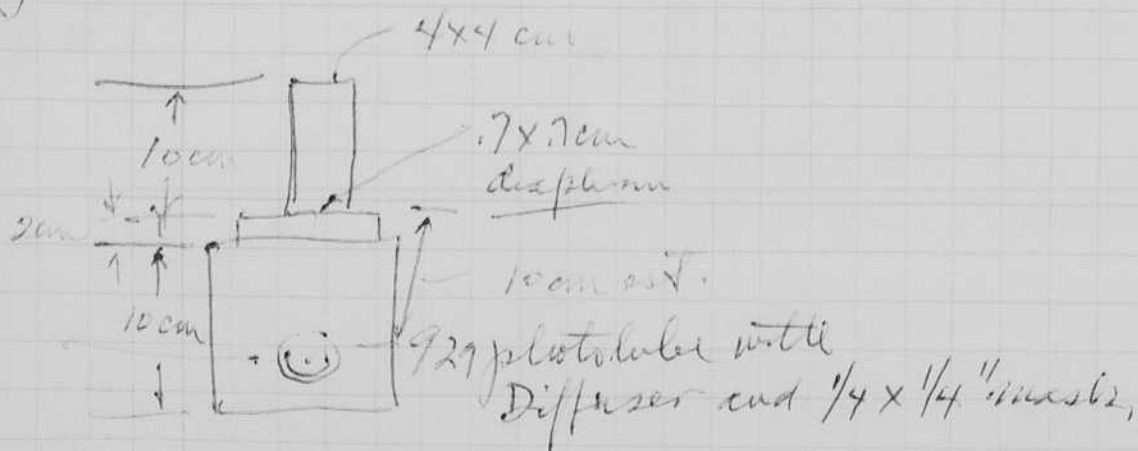 4x4 cm
10cm
.7x.7cm
diaphram
2cm
10 cm est.
10cm
929 phototube with
Diffuser and 1/4 x 1/4"